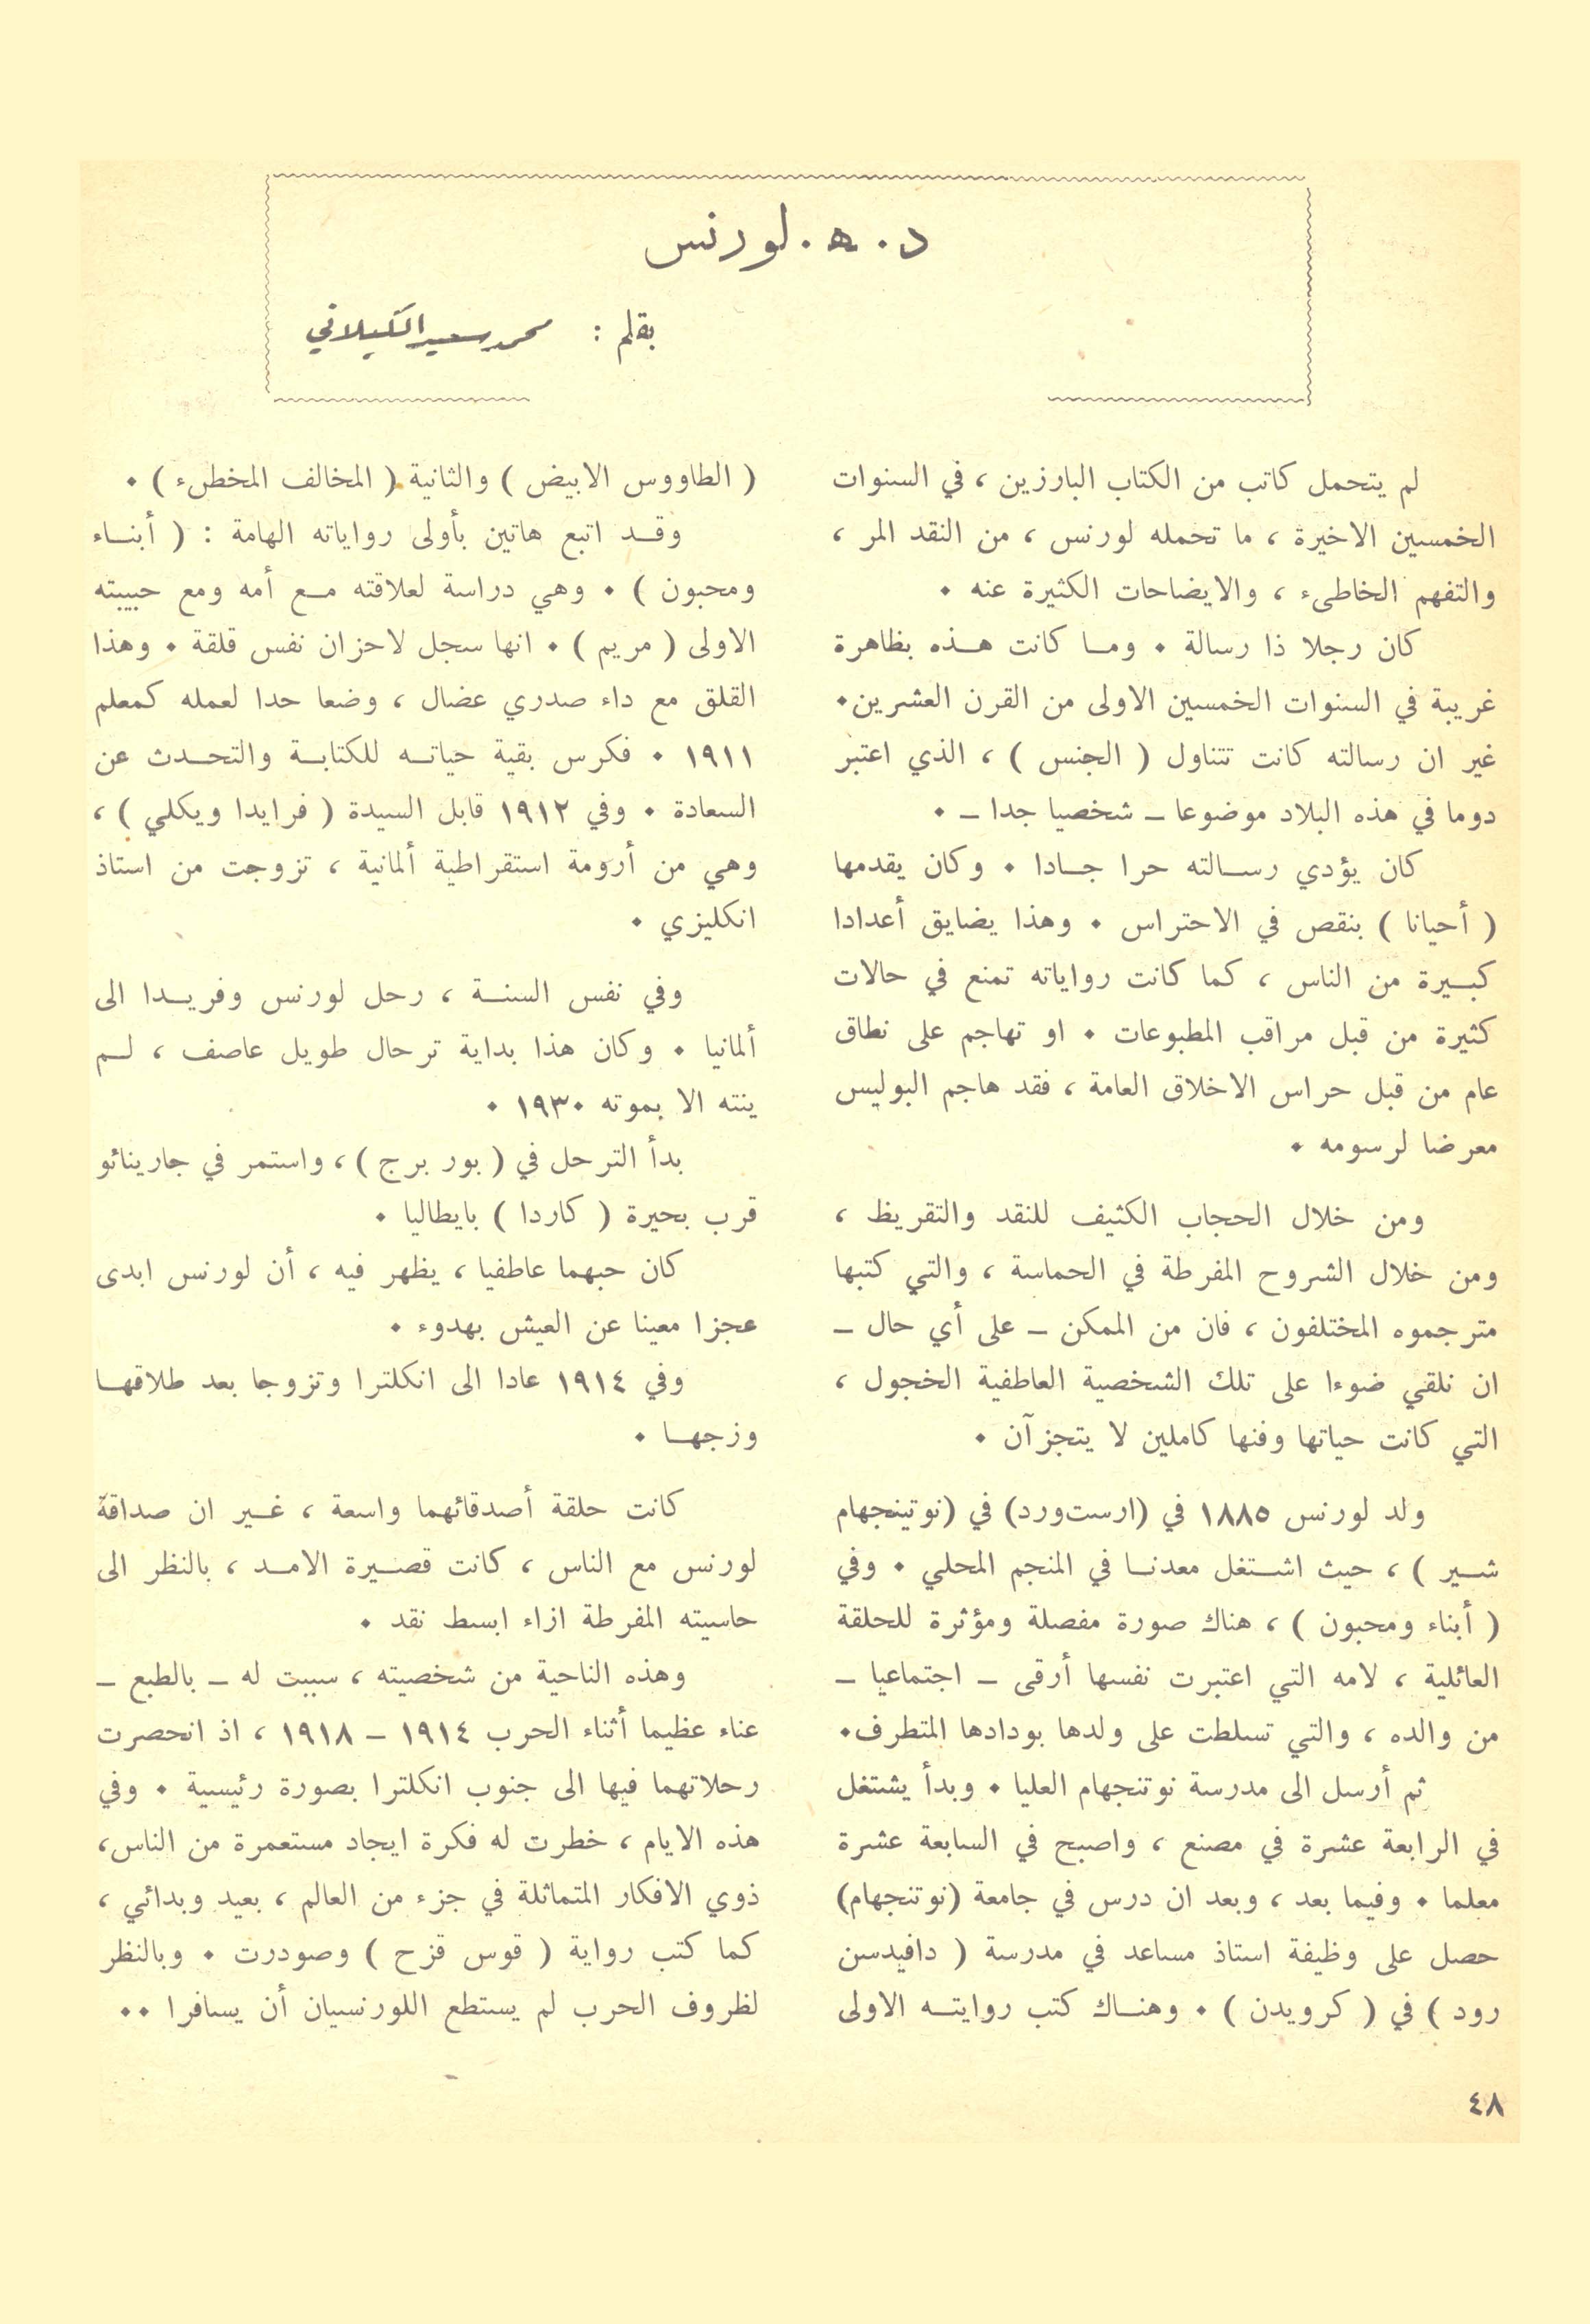 د. ه. لورنس
بقلم : محمد سعيد الكيلاني
لم يتحمل كاتب من الكتاب البارزين ، في السنوات
الخمسين الاخيرة ، ما تحمله لورنس ، من النقد المر ،
والتفهم الخاطىء ، والايضاحات الكثيرة عنه ٠
كان رجلا ذا رسالة ٠ وما كانت هذه بظاهرة
غريبة في السنوات الخمسين الاولى من القرن العشرين٠
غير ان رسالته كانت تتناول ( الجنس ) ، الذي اعتبر
دوما في هذه البلاد موضوعا – شخصيا جدا – ٠
كان يؤدي رسالته حرا جادا ٠ وكان يقدمها
( أحيانا ) بنقص في الاحتراس ٠ وهذا يضايق أعدادا
كبيرة من الناس ، كما كانت رواياته تمنع في حالات
كثيرة من قبل مراقب المطبوعات ٠ او تهاجم على نطاق
عام من قبل حراس الاخلاق العامة ، فقد هاجم البوليس
معرضا لرسومه ٠
ومن خلال الحجاب الكثيف للنقد والتقريظ ،
ومن خلال الشروح المفرطة في الحماسة ، والتي كتبها
مترجموه المختلفون ، فان من الممكن – على أي حال –
ان نلقي ضوءا على تلك الشخصية العاطفية الخجول ،
التي كانت حياتها وفنها كاملين لا يتجزآن ٠
ولد لورنس ١٨٨٥ في (ارست‌ورد) في (نوتينجهام
شير ) ، حيث اشتغل معدنا في المنجم المحلي ٠ وفي
( أبناء ومحبون ) ، هناك صورة مفصلة ومؤثرة للحلقة
العائلية ، لامه التي اعتبرت نفسها أرقى – اجتماعيا –
من والده ، والتي تسلطت على ولدها بودادها المتطرف٠
ثم أرسل الى مدرسة نوتنجهام العليا ٠ وبدأ يشتغل
في الرابعة عشرة في مصنع ، واصبح في السابعة عشرة
معلما ٠ وفيما بعد ، وبعد ان درس في جامعة (نوتنجهام)
حصل على وظيفة استاذ مساعد في مدرسة ( دافيدسن
رود ) في ( كرويدن ) ٠ وهناك كتب روايته الاولى
( الطاووس الابيض ) والثانية ( المخالف المخطىء ) ٠
وقد اتبع هاتين بأولى رواياته الهامة : ( أبناء
ومحبون ) ٠ وهي دراسة لعلاقته مع أمه ومع حبيبته
الاولى ( مريم ) ٠ انها سجل لاحزان نفس قلقة ٠ وهذا
القلق مع داء صدري عضال ، وضعا حدا لعمله كمعلم
١٩١١ ٠ فكرس بقية حياته للكتابة والتحدث عن
السعادة ٠ وفي ١٩١٢ قابل السيدة ( فرايدا ويكلي ) ،
وهي من أرومة استقراطية ألمانية ، تزوجت من استاذ
انكليزي ٠
وفي نفس السنة ، رحل لورنس وفريدا الى
ألمانيا ٠ وكان هذا بداية ترحال طويل عاصف ، لم
ينته الا بموته ١٩٣٠ ٠
بدأ الترحل في ( بور برج ) ، واستمر في جارينائو
قرب بحيرة ( كاردا ) بايطاليا ٠
كان حبهما عاطفيا ، يظهر فيه ، أن لورنس ابدى
عجزا معينا عن العيش بهدوء ٠
وفي ١٩١٤ عادا الى انكلترا وتزوجا بعد طلاقها
وزجها ٠
كانت حلقة أصدقائهما واسعة ، غير ان صداقة
لورنس مع الناس ، كانت قصيرة الامد ، بالنظر الى
حاسيته المفرطة ازاء ابسط نقد ٠
وهذه الناحية من شخصيته ، سببت له – بالطبع –
عناء عظيما أثناء الحرب ١٩١٤ – ١٩١٨ ، اذ انحصرت
رحلاتهما فيها الى جنوب انكلترا بصورة رئيسية ٠ وفي
هذه الايام ، خطرت له فكرة ايجاد مستعمرة من الناس،
ذوي الافكار المتماثلة في جزء من العالم ، بعيد وبدائي ،
كما كتب رواية ( قوس قزح ) وصودرت ٠ وبالنظر
لظروف الحرب لم يستطع اللورنسيان أن يسافرا ٠٠
٤٨